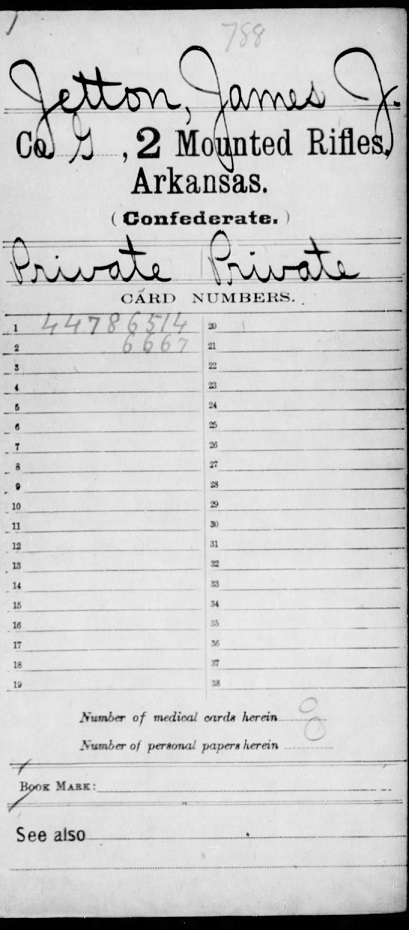 788
Jetton, James J.
Co. G, 2 Mounted Rifles,
Arkansas.
(Confederate.)
Private Private
CARD NUMBERS.
1 44786514 20
2 6667 21
3 22
4 23
5 24
6 25
7 26
8 27
9 28
10 29
11 30
12 31
13 32
14 33
15 34
16 35
17 36
18 37
19 38
Number of medical cards herein 0
Number of personal papers herein 0
BOOK MARK:
See also